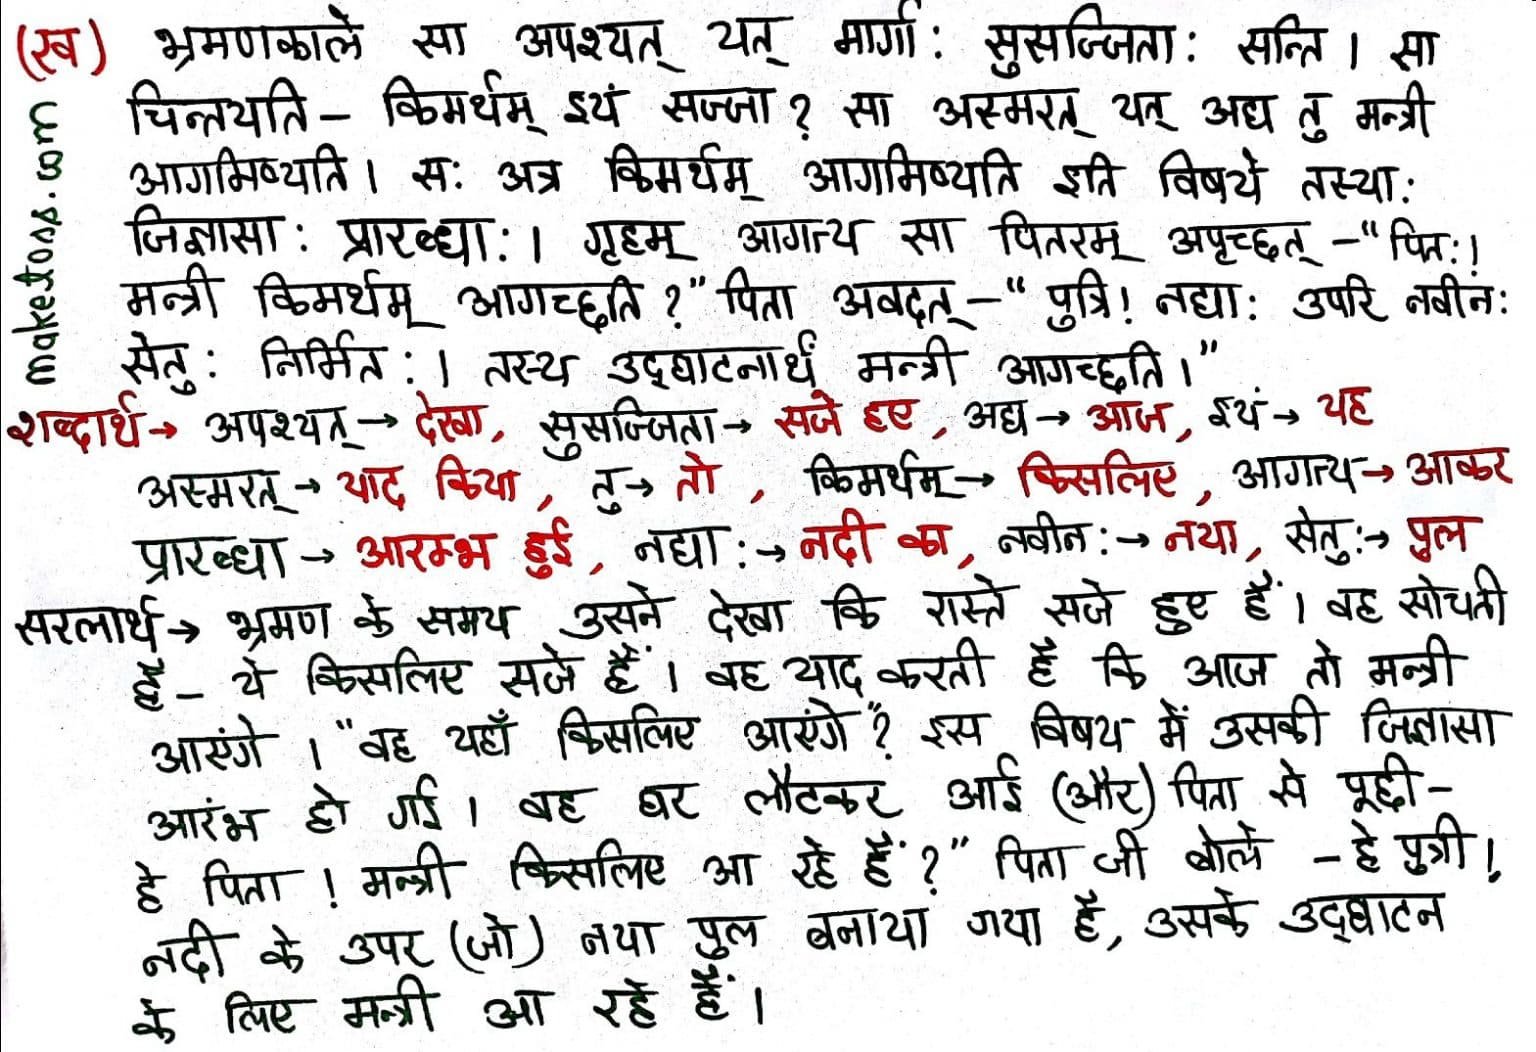 (ख) भ्रमणकाले सा अपश्यत् यत् मार्गा: सुसज्जिता: सन्ति। सा
चिन्तयति– किमर्थम् इयं सज्जा? सा अस्मरत् यत् अद्य तु मन्त्री
आगमिष्यति। स: अत्र किमर्थम् आगमिष्यति इति विषये तस्या:
जिज्ञासा: प्रारब्धा:। गृहम् आगत्य सा पितरम् अपृच्छत् –"पित:!
मन्त्री किमर्थम् आगच्छति?" पिता अवदत् –"पुत्रि! नद्या: उपरि नवीन:
सेतु: निर्मित:। तस्य उद्घाटनार्थं मन्त्री आगच्छति।"
maketoss.com
शब्दार्थ→ अपश्यत्→ देखा, सुसज्जिता→ सजे हुए, अद्य→ आज, इयं→ यह
अस्मरत्→ याद किया, तु→ तो, किमर्थम्→ किसलिए, आगत्य→ आकर
प्रारब्धा→ आरम्भ हुई, नद्या:→ नदी का, नवीन:→ नया, सेतु:→ पुल
सरलार्थ→ भ्रमण के समय उसने देखा कि रास्ते सजे हुए हैं। वह सोचती
है– ये किसलिए सजे हैं। वह याद करती है कि आज तो मन्त्री
आएंगे। "वह यहाँ किसलिए आएंगे"? इस विषय में उसकी जिज्ञासा
आरंभ हो गई। वह घर लौटकर आई (और) पिता से पूछी–
हे पिता! मन्त्री किसलिए आ रहे हैं?" पिता जी बोले –हे पुत्री!
नदी के उपर (जो) नया पुल बनाया गया है, उसके उद्घाटन
के लिए मन्त्री आ रहे हैं।